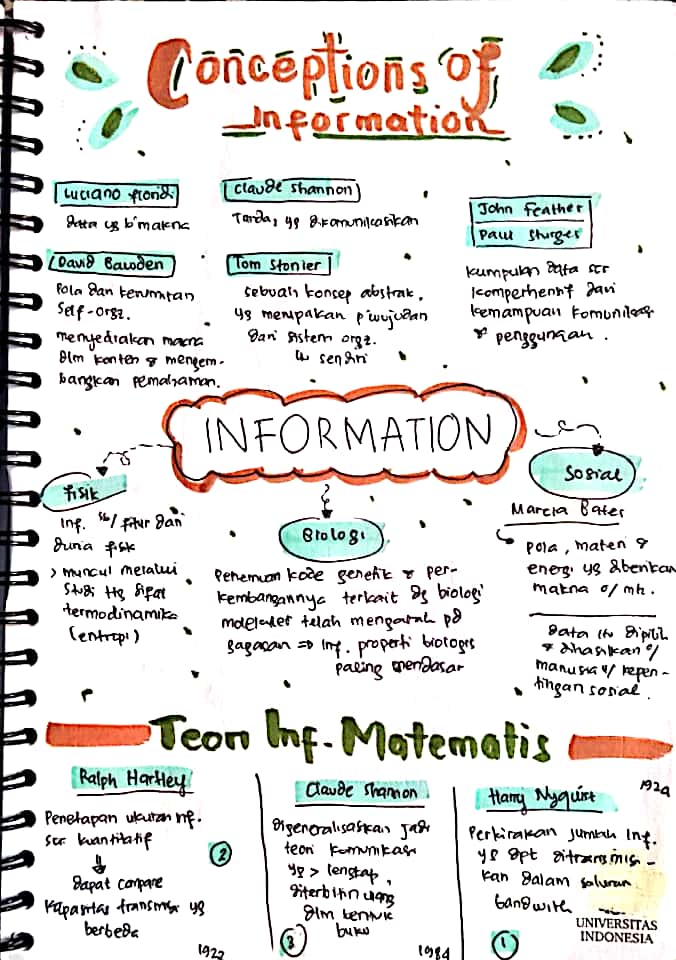 Conceptions of
Information
Luciano Floridi
data yg b'makna
Claude Shannon
Tanda, yg dikomunikasikan
John Feather
Paul Sturges
kumpulan data scr
komperhenif dari
kemampuan komunikasi
& penggunaan.
David Bawden
Pola dan kerumitan
Self-orgz.
menyediakan makna
dlm konten & mengem-
bangkan pemahaman.
Tom Stonier
sebuah konsep abstrak,
yg merupakan p'wujudan
dari sistem orgz.
itu sendiri
INFORMATION
Fisik
Inf. sb/ fitur dari
dunia fisik
> muncul melalui
studi ttg sifat
termodinamika
(entropi)
Biologi
Penemuan kode genetik & per-
kembangannya terkait dg biologi
molekuler telah mengarah pd
gagasan => Inf. properti biologis
paling mendasar
Sosial
Marcia Bates
pola, materi &
energi yg diberikan
makna o/ mh.
data itu dipilih
& dihasilkan o/
manusia u/ kepen-
tingan sosial.
Teori Inf. Matematis
Ralph Hartley
Penetapan ukuran inf.
scr kuantitatif
dapat compare
kapasitas transmisi yg
berbeda
2
Claude Shannon
digeneralisasikan jadi
teori komunikasi
yg > lengkap,
diterbitin ulang
dlm bentuk
buku
3
1984
Harry Nyquist
1924
Perkirakan jumlah inf.
yg dpt ditransmisi-
kan dalam saluran
bandwith
1
UNIVERSITAS
INDONESIA